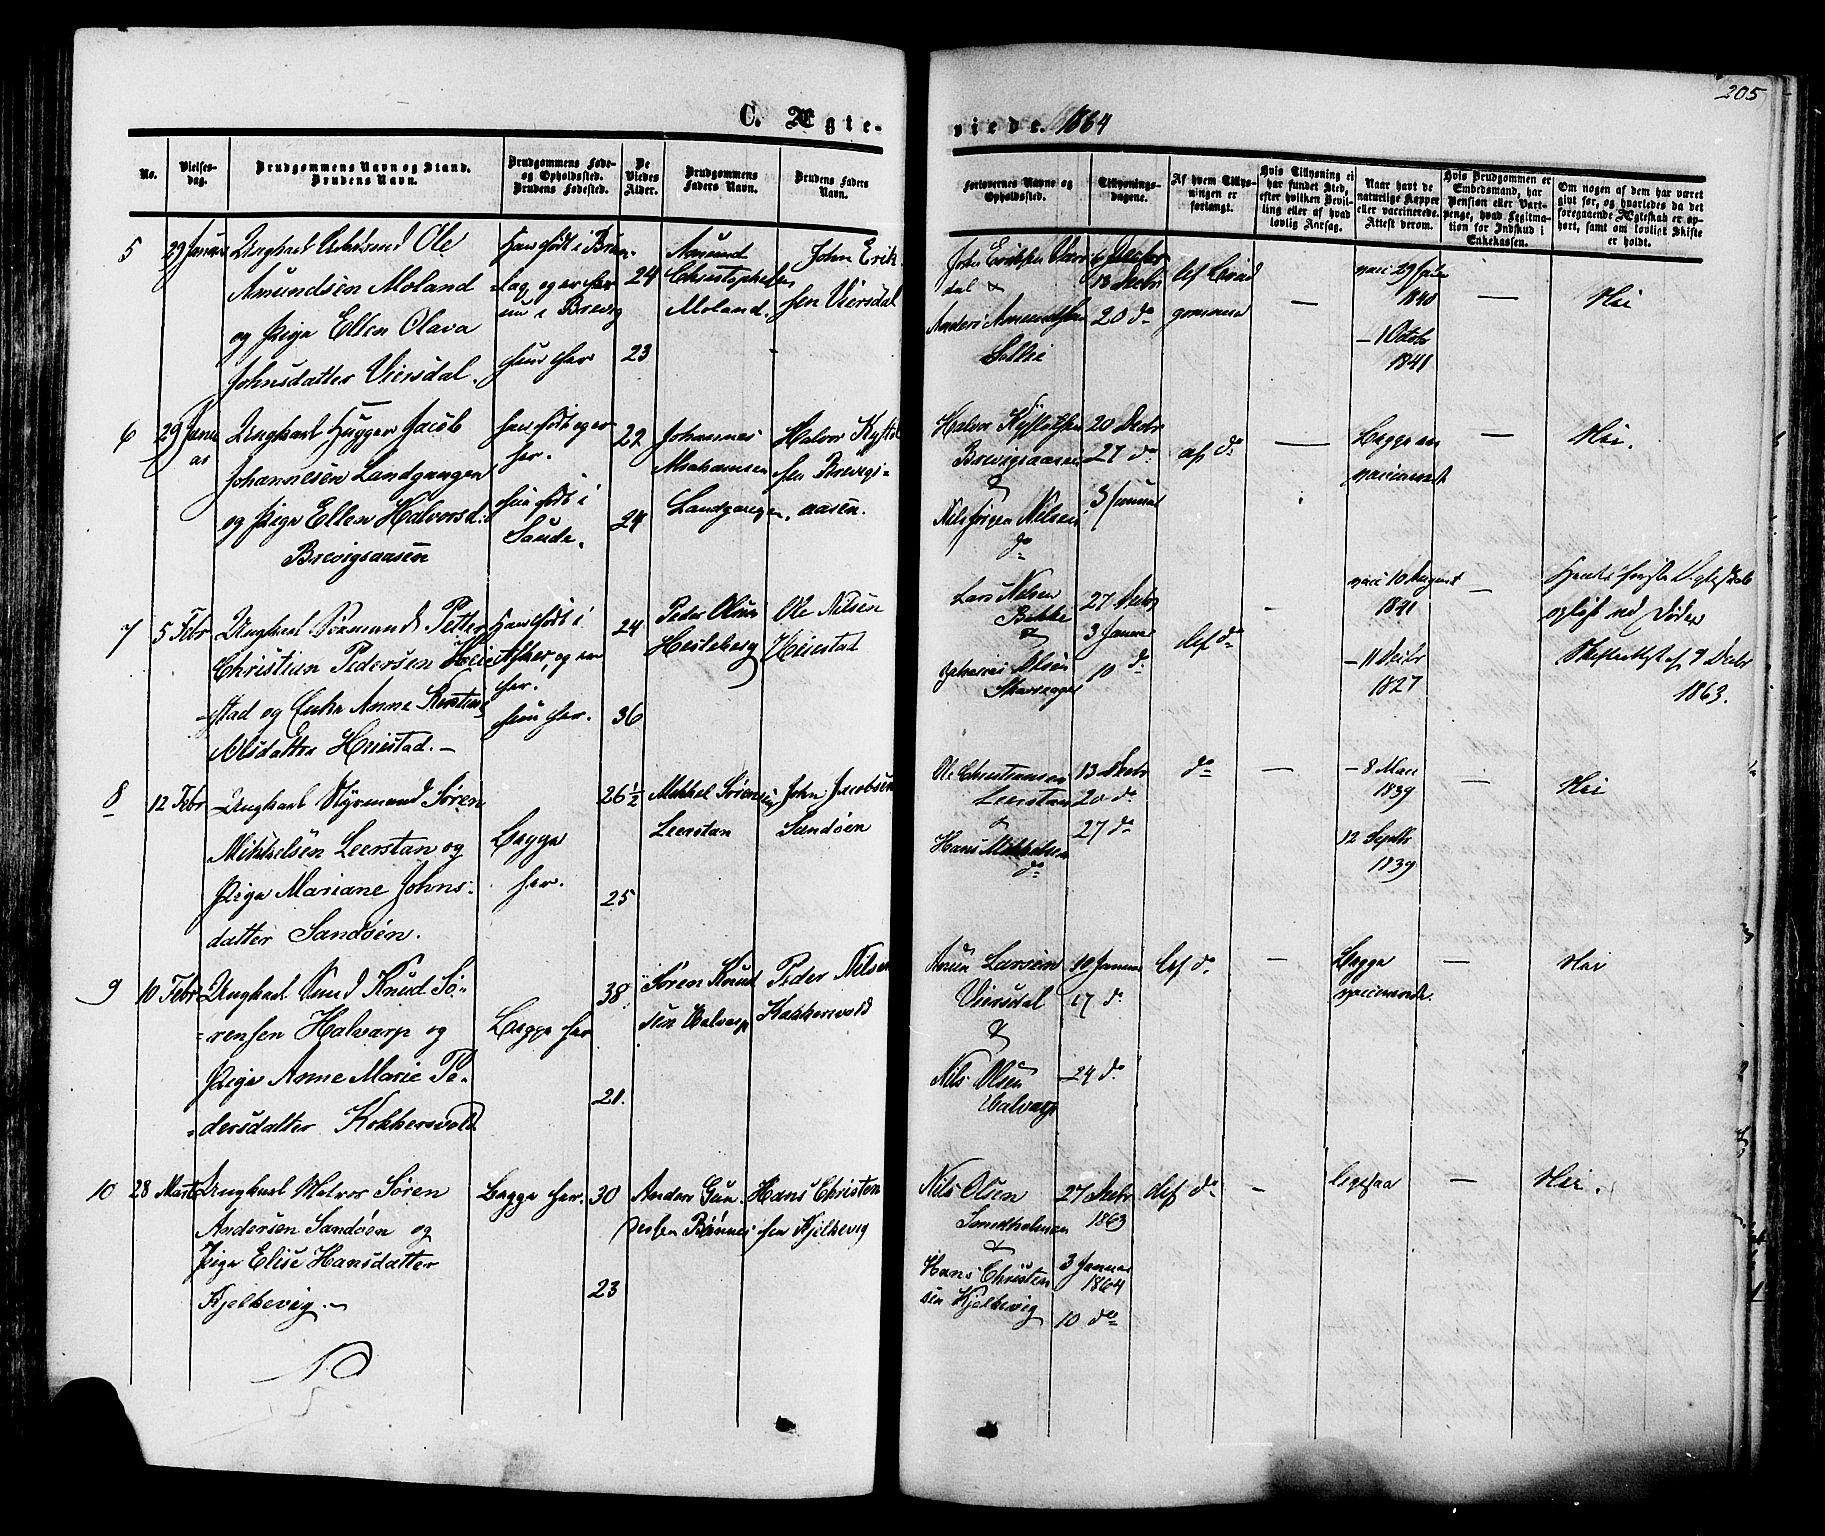 205
C. Ægteviede. 1864
No.
Vielses-
dag.
Brudgommens Navn og Stand.
Brudens Navn.
Brudgommens Føde-
og Opholdssted.
Brudens Fødested.
De
Viedes
Alder.
Brudgommens
Faders Navn.
Brudens Faders
Navn.
Forlovernes Navne og
Opholdssted.
Tillysnings-
dagene.
Af hvem Tillys-
ningen er
forlangt.
Hvis Tillysning ei
har fundet Sted,
efter hvilken Bevil-
ling eller af hvad
lovlig Aarsag.
Naar havt de
naturlige Kopper
eller vaccinerede.
Attest derom.
Hvis Brudgommen er
Embedsmand, har
Pension eller Vart-
penge, hvad Legitma-
tion for Indskud i
Enkekassen.
Om nogen af dem har været
givt før, og hvorledes da det
foregaaende Ægteskab er op-
hørt, samt om lovligt Skifte
er holdt.
5
29 Januar
Ungkarl Ole
Amundsen Moland
og Pige Ellen Olava
Johnsdatter Viersdal.
Han født i
og er her
i Brevig
hun her
24
23
Amund
Christophersen
Moland.
John Erik-
sen Viersdal
John Eriksen Viers-
dal &
Anders Amundsen
6 Decbr
13 Decbr
20 do
af Brud-
gommen
—
vacc 29
1840
— 1 Octob
1841
—
Nei
6
29 Janu-
ar
Ungkarl Hugger Jacob
Johannesen Landgangen
og Pige Ellen Halvorsd.
Brevigsaasen
han født og er
her.
Hun født i
Sande.
22
24
Johannes
Abrahamsen
Landgangen.
Halvor
sen Brevigs-
aasen.
Halvor
Brevigsaasen
&
Nils Jørgen Nilsen
do
20 Decbr
27 do
3 Januar
af do
—
Begge
vaccineret
—
Nei.
7
5 Febr
Ungkarl Sømand Petter
Christian Pedersen Heie-
stad og Enke Anne Kirstine
Olsdatter Heiestad. —
Han født i
og er
her.
hun her.
24
36
Peder Olsen
Ole Nilsen
Heiestad
Lars Nilsen
Bakke
&
Olsen
27 Decbr
3 Januar
10 do
af do
-
vacc 10 August
1841
— 11 Decbr
1827
—
første Ægteskab
ved Døden
Skifteattest af 7 Decbr
1863.
8
12 Febr
Ungkarl Styrmand Søren
Mikkelsen Leerstan og
Pige Mariane Johns-
datter Sandøen.
Begge
her.
26 ½
25
Mikkel Sørensen
Leerstan
John Jacobsen
Sandøen
Ole Christiansen
Leerstan
&
Hans Mikkelsen
do
13 Decbr
20 do
27 do
do
—
— 8 Mai
1839
12 Septbr
1839
—
Nei
9
10 Febr
Ungkarl Knud Sø-
rensen Halvarp og
Pige Anne Marie Pe-
dersdatter Kokkersvold
Begge her
38
21.
Søren Knud-
sen Halvarp
Peder Nilsen
Kokkersvold
Larsen
Viersdal
&
Nils Olsen
Halvarp
10 Januar
17 do
24 do
af do
—
Begge
vaccinerede.
—
Nei
10
28 Marts
Ungkarl Matros Søren
Andersen Sandøen og
Pige Elise Hansdatter
Kjelkevig. —
Begge her.
30
23
Anders Gun-
dersen
Hans Christen-
sen Kjelkevig
Nils Olsen
Smedholmen
&
Hans Christen-
sen Kjelkevig
27 Decbr
1863
3 Januar
1864
10 do
af do
—
ligesaa
—
Nei.